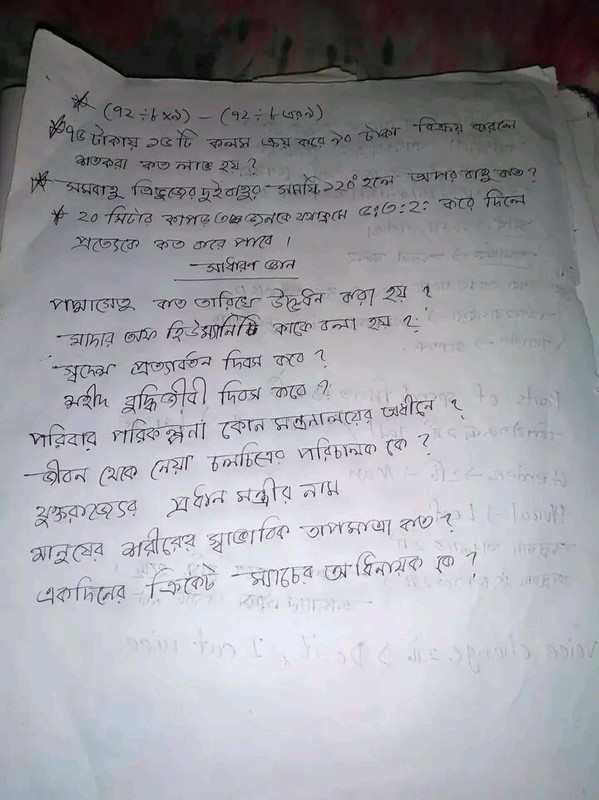 * (৭২ ÷ ৮ × ৯) – (৭২ ÷ ৮ এর ৯)
* ৭৫ টাকায় ১৫ টি কলম ক্রয় করে ৯০ টাকা বিক্রয় করলে
শতকরা কত লাভ হয় ?
* সমবাহু ত্রিভুজের দুইবাহুর সমষ্টি ১২০° হলে অপর বাহু কত ?
* ২০ মিটার কাপড় ৩ জনকে যথাক্রমে ৫:৩:২: করে দিলে
প্রত্যেকে কত করে পাবে ।
সাধারণ জ্ঞান
পদ্মাসেতু কত তারিখে উদ্বোধন করা হয় ?
মাদার অফ হিউম্যানিটি কাকে বলা হয় ?
স্বদেশ প্রত্যাবর্তন দিবস কবে ?
শহীদ বুদ্ধিজীবী দিবস কবে ?
পরিবার পরিকল্পনা কোন মন্ত্রনালয়ের অধীনে ?
জীবন থেকে নেয়া চলচিত্রের পরিচালক কে ?
যুক্তরাজ্যের প্রধান মন্ত্রীর নাম
মানুষের শরীরের স্বাভাবিক তাপমাত্রা কত ?
একদিনের ক্রিকেট ম্যাচের অধিনায়ক কে ?